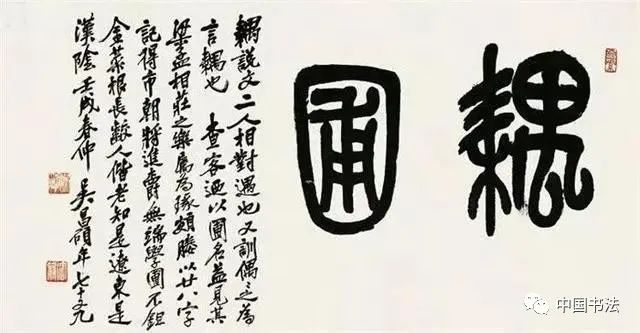 耦圃
耦說文二人相對遇也又訓偶之為
言耦也 查客過以圃名益見其
梁孟相莊之樂屬為額以廿八字
記得市朝將進爵無端學圃不鉏
金菜根長齩人偕老知是遼東是
漢陰 壬戌春仲 吳昌碩年七十九
中国书法